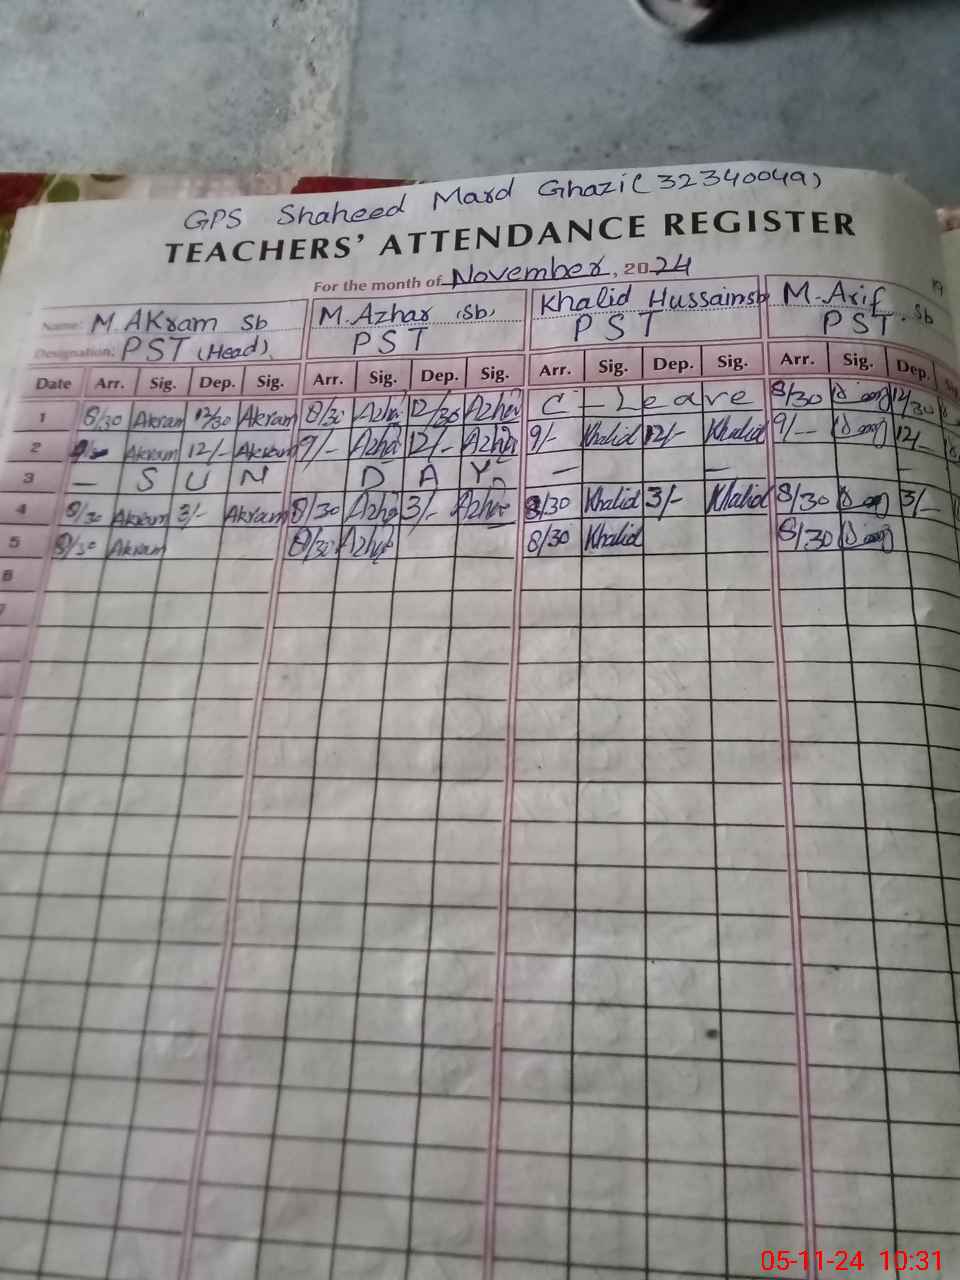 GPS Shaheed Mard Ghazi (32340049)
TEACHERS' ATTENDANCE REGISTER
For the month of November, 2024
Name: M. AKram Sb M. Azhar (Sb) Khalid Hussain sb M. Arif Sb
Designation: PST (Head) PST PST PST
Date Arr. Sig. Dep. Sig. Arr. Sig. Dep. Sig. Arr. Sig. Dep. Sig. Arr. Sig. Dep.
1 8/30 Akram 12/30 Akram 8/30 Azhar 12/30 Azhar C - Leave 8/30 12/30
2 Akram 12/- Akram 9/- Azhar 12/- Azhar 9/- Khalid 12/- Khalid 9/- 12/-
3 — S U N D A Y — — —
4 8/30 Akram 3/- Akram 8/30 Azhar 3/- Azhar 8/30 Khalid 3/- Khalid 8/30 3/-
5 8/30 Akram 8/30 Azhar 8/30 Khalid 8/30
6
7
05-11-24 10:31